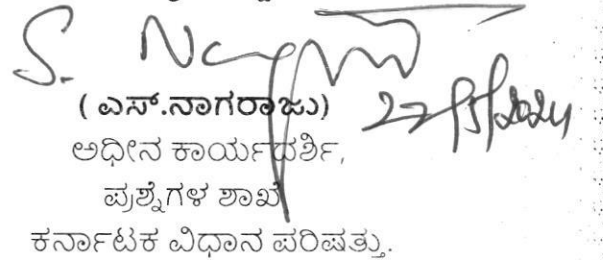 S. Nagaraju
(ಎಸ್.ನಾಗರಾಜು)
ಅಧೀನ ಕಾರ್ಯದರ್ಶಿ,
ಪ್ರಶ್ನೆಗಳ ಶಾಖೆ
ಕರ್ನಾಟಕ ವಿಧಾನ ಪರಿಷತ್ತು.